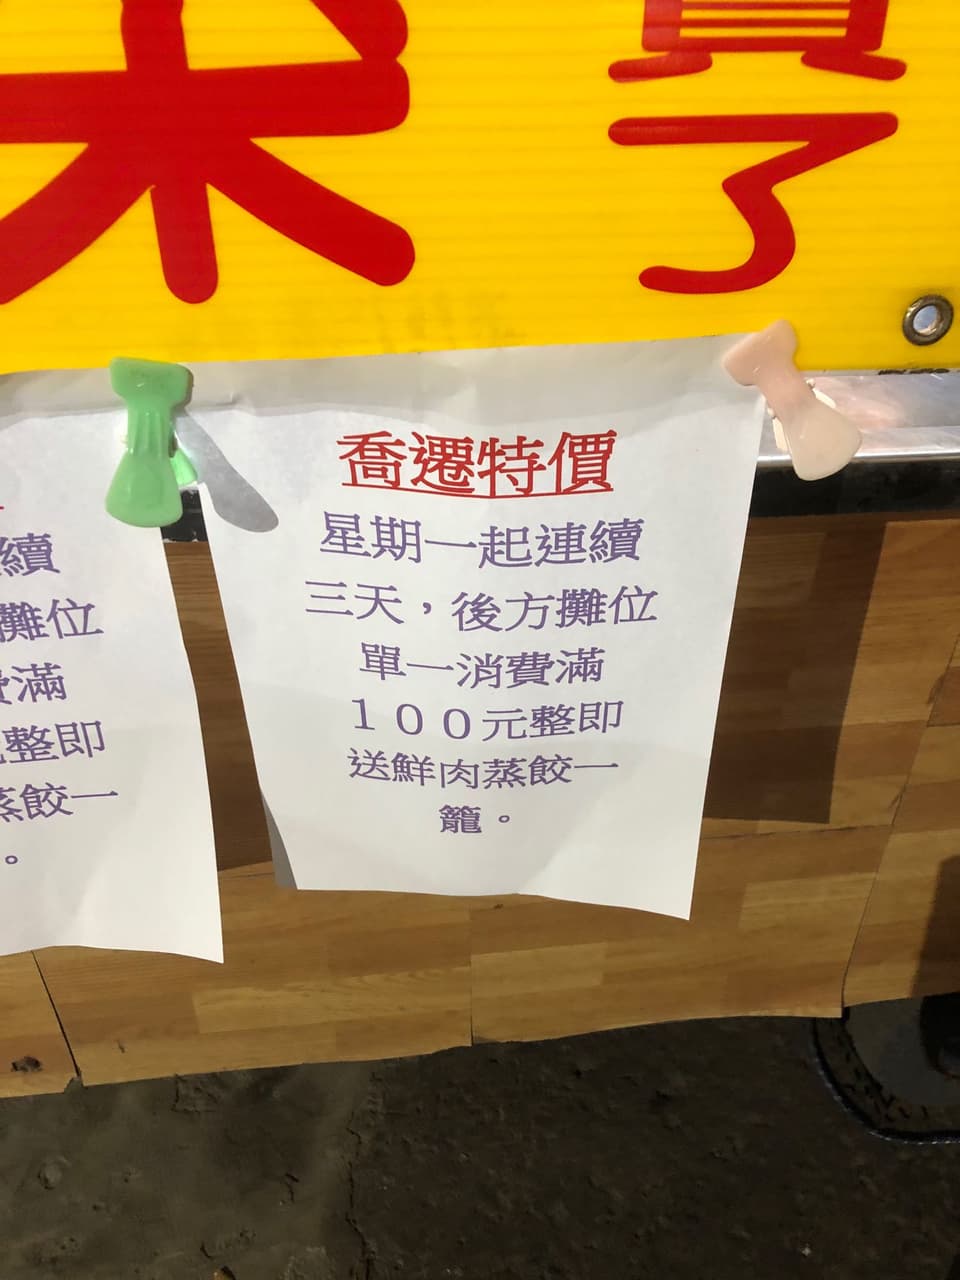 來
買
了
喬遷特價
星期一起連續
三天，後方攤位
單一消費滿
１００元整即
送鮮肉蒸餃一
籠。
續
攤位
費滿
整即
蒸餃一
。